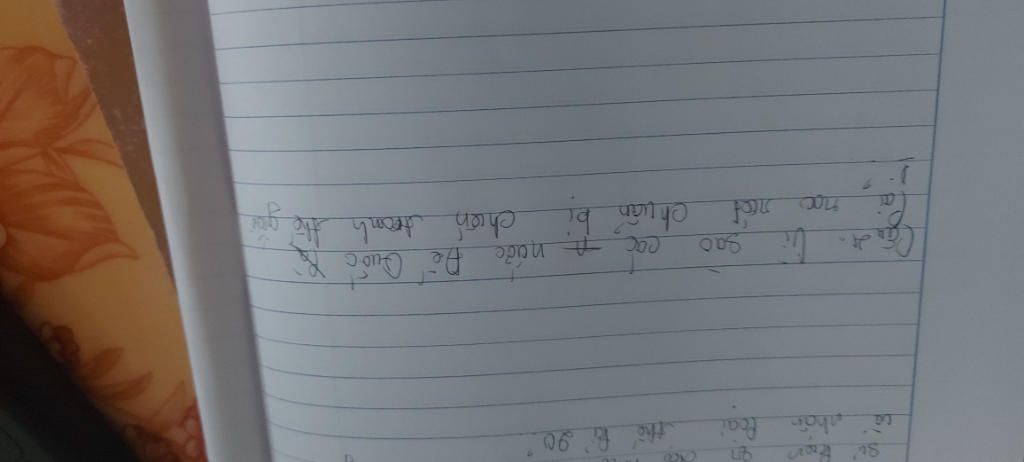 sự kiện
cả nhân loại thế kỉ 20.
Vì sao các nước Đế Quốc
lại ráo riết chuẩn bị chiến tranh thế giới